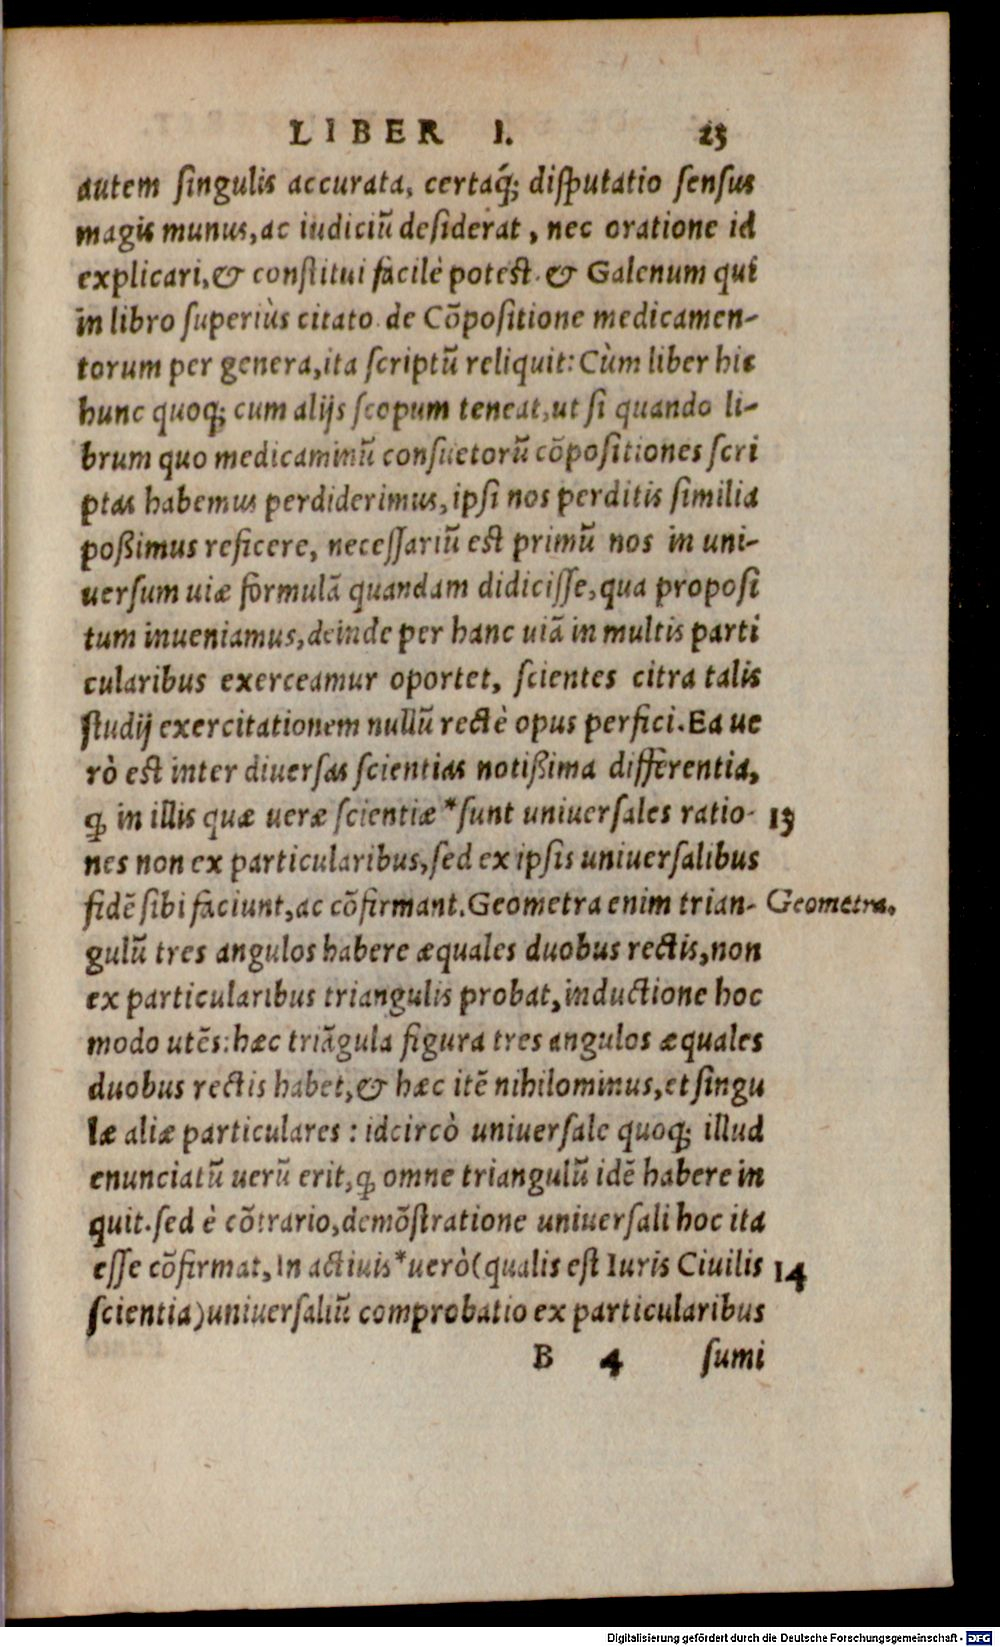 LIBER I. 23
autem ſingulis accurata, certaq́; diſputatio ſenſus
magis munus, ac iudiciũ deſiderat, nec oratione id
explicari, & conſtitui facilè poteſt. & Galenum qui
in libro ſuperiùs citato de Cõpoſitione medicamen-
torum per genera, ita ſcriptũ reliquit: Cùm liber hic
hunc quoq; cum alijs ſcopum teneat, ut ſi quando li-
brum quo medicaminũ conſuetorũ cõpoſitiones ſcri
ptas habemus perdiderimus, ipſi nos perditis ſimilia
poßimus reficere, neceſſariũ eſt primũ nos in uni-
uerſum uiæ formulã quandam didiciſſe, qua propoſi
tum inueniamus, deinde per hanc uiã in multis parti
cularibus exerceamur oportet, ſcientes citra talis
ſtudij exercitationem nullũ rectè opus perfici. Ea ue
rò eſt inter diuerſas ſcientias notißima differentia,
ꝙ in illis quæ ueræ ſcientiæ *ſunt uniuerſales ratio- 13
nes non ex particularibus, ſed ex ipſis uniuerſalibus
fidẽ ſibi faciunt, ac cõfirmant. Geometra enim trian- Geometra.
gulũ tres angulos habere æquales duobus rectis, non
ex particularibus triangulis probat, inductione hoc
modo utẽs: hæc triãgula figura tres angulos æquales
duobus rectis habet, & hæc itẽ nihilominus, et ſingu
læ aliæ particulares: idcircò uniuerſale quoq; illud
enunciatũ uerũ erit, ꝙ omne triangulũ idẽ habere in
quit. ſed è cõtrario, demõſtratione uniuerſali hoc ita
eſſe cõfirmat, In actiuis *uerò (qualis eſt Iuris Ciuilis 14
ſcientia) uniuerſaliũ comprobatio ex particularibus
B 4 ſumi
Digitalisierung gefördert durch die Deutsche Forschungsgemeinschaft - DFG